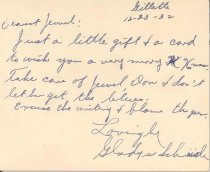 Gillette
12-23-32
Dearest Jewel:
Just a little gift & a card
to wish you a very merry Xmas
Take care of Jewel, Don & don't
let her get the blues.
Excuse the writing & blame the pen.
Lovingly
Gladys